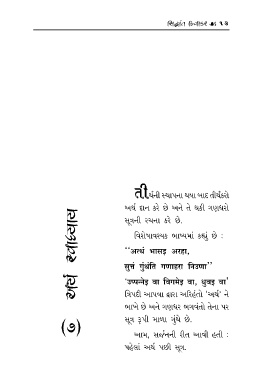 સિદ્ધાંત દિવાકર ૧૩
તીર્થની સ્થાપના થયા બાદ તીર્થંકરો
અર્થ દાન કરે છે અને તે થકી ગણધરો
સૂત્રની રચના કરે છે.
વિશેષાવશ્યક ભાષ્યમાં કહ્યું છે :
"अत्थं भासइ अरहा,
सुत्तं गुंथंति गणहरा निउणा"
'उप्पन्नेइ वा विगमेइ वा, धुवइ वा'
ત્રિપદી આપવા દ્વારા અરિહંતો 'અર્થ' ને
ભાખે છે અને ગણધર ભગવંતો તેના પર
સૂત્ર રૂપી માળા ગુંથે છે.
આમ, સર્જનની રીત આવી હતી :
પહેલાં અર્થ પછી સૂત્ર.
(૭) અર્થ સ્વાધ્યાય